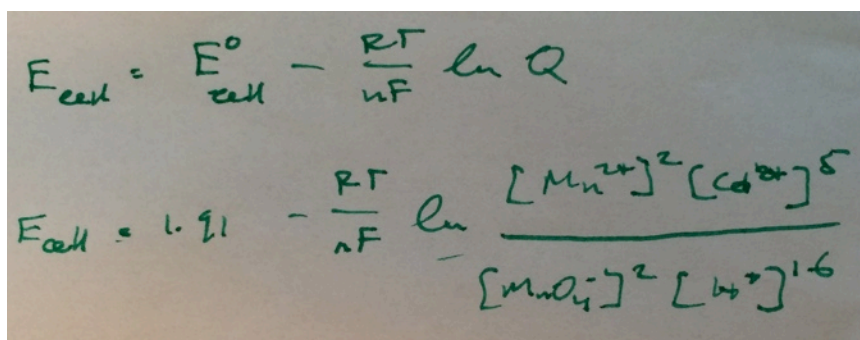 E_cell = E°_cell − RT/nF ln Q
E_cell = 1.91 − RT/nF ln [Mn²⁺]² [Cd²⁺]⁵ / [MnO₄⁻]² [H⁺]¹⁶